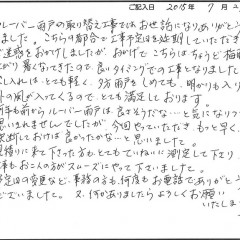 ご記入日 2015年 7月
ルーバー雨戸の取り替え工事では、お世話になりありがとうござい
ました。こちらの都合で工事予定日を延期していただき
ご迷惑をおかけしましたが、おかげでこちらはちょうど梅雨
が 暑くなってきたので、良いタイミングでの工事となりました
入れは、とても軽く、夕方雨戸をしめても、明かりも入り
の風が入ってくるので、とても満足しております。
年も前からルーバー雨戸は良さそうだな…と気になりつつ
思いませんでしたが、今回やっていただき、もっと早く
決断しておけば良かったかな…と思いました。
見積りに来て下さった方も、とてもていねいに測定して下さり
工事もお二人の方がスムーズにやって下さいました。
予定日の変更など、事務の方も、何度もお電話でありがとう
ございました。又、何かありましたらよろしくお願い
いたします